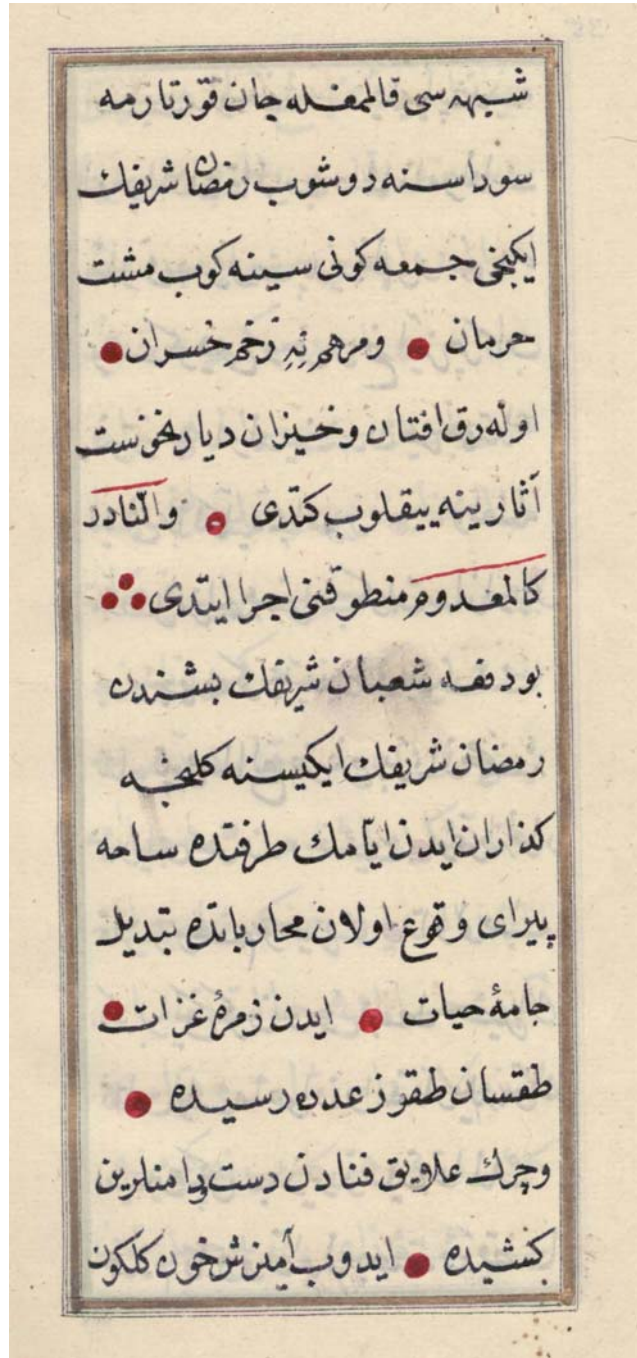 شبهه سی قالمغله جان قورتارمه
سوداسنه دوشوب رمضان شریفك
ایکنجی جمعه کونی سینه کوب مشت
حرمان ● ومرهم نِهِ زخم خسران ●
اوله رق افتان وخیزان دیار نحوست
آثارینه ییقلوب کتدی ● والنادر
کالمعدوم منطوقنی اجرا ایتدی
بودفعه شعبان شریفك بشندن
رمضان شریفك ایکیسنه کلنجه
کذاران ایدن ایامك طرفنده ساحه
پیرای وقوع اولان محارباتده تبدیل
جامهٔ حیات ● ایدن زمرهٔ غزات ●
طقسان طقوز عدده رسیده ●
وچرك علایق فنادن دست ودامنلرین
کشیده ● ایدوب آمیزش خون کلکون